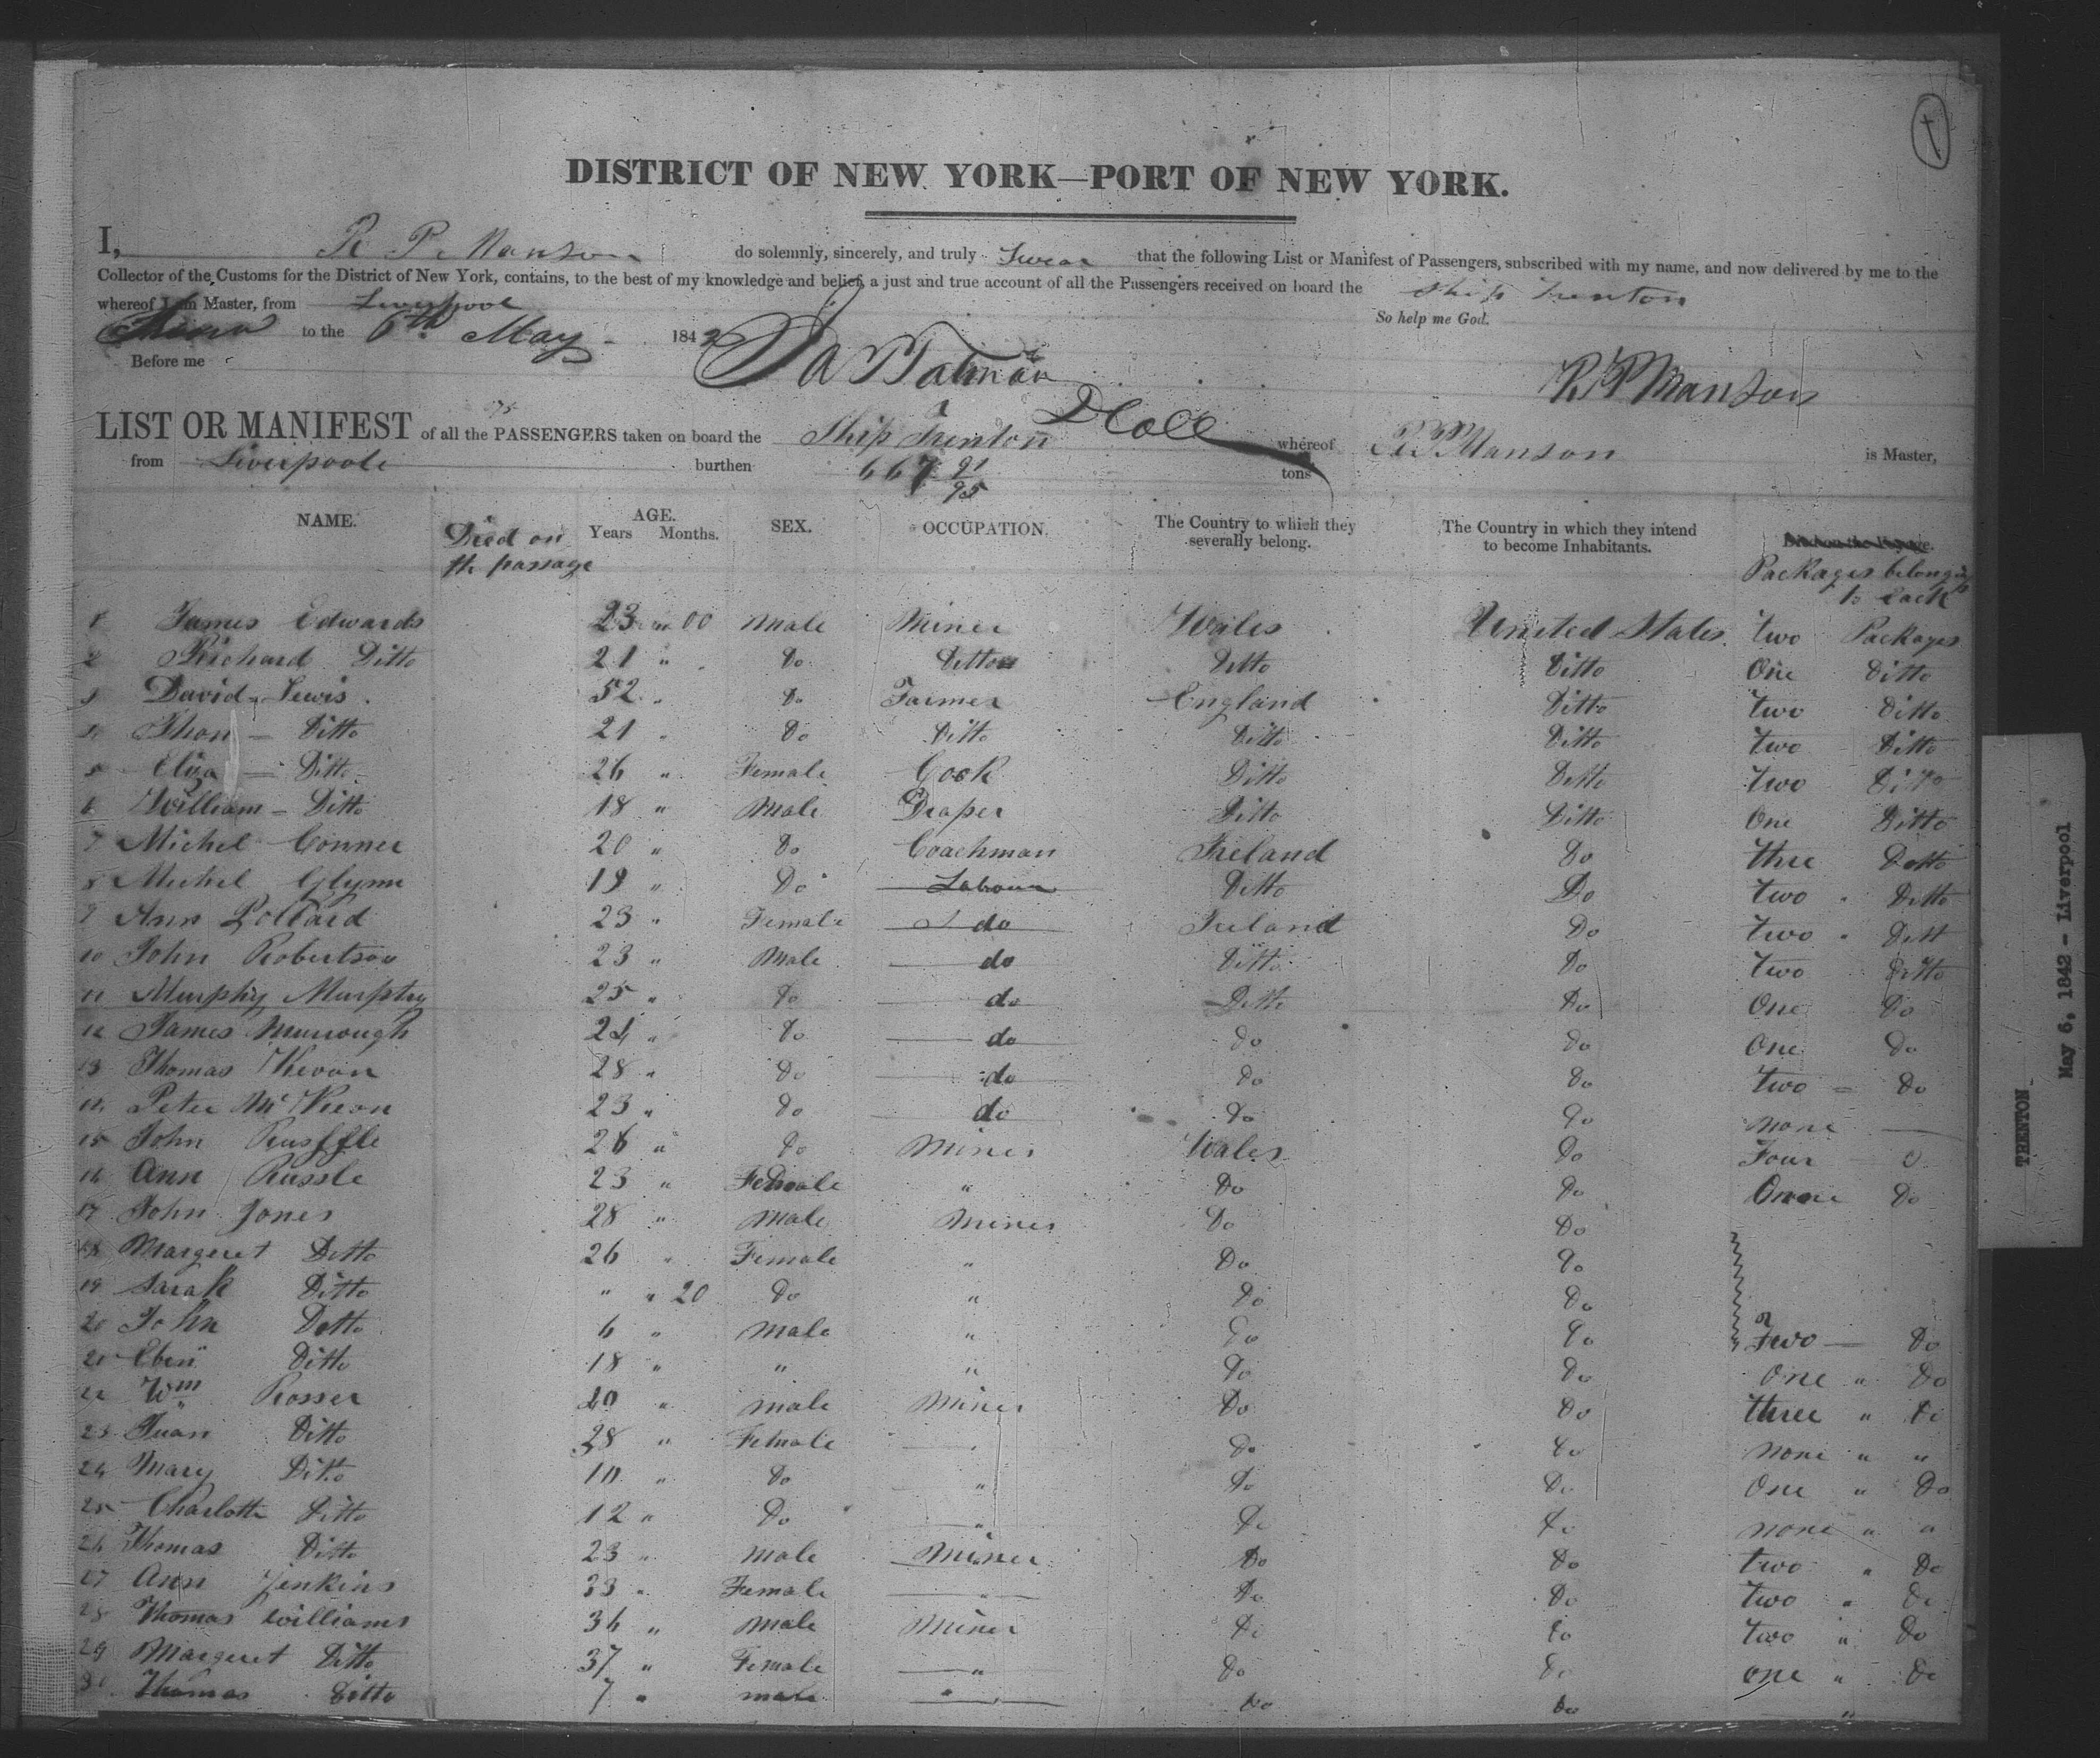 DISTRICT OF NEW YORK—PORT OF NEW YORK.
I, R P Manson do solemnly, sincerely, and truly Swear that the following List or Manifest of Passengers, subscribed with my name, and now delivered by me to the
Collector of the Customs for the District of New York, contains, to the best of my knowledge and belief, a just and true account of all the Passengers received on board the Ship Trenton
whereof I am Master, from Liverpool
So help me God.
to the 6th May 1842
Before me
R P Manson
LIST OR MANIFEST of all the PASSENGERS taken on board the Ship Trenton whereof R P Manson is Master,
from Liverpoole burthen 667 91/95 tons
NAME. Died on the passage AGE. Years Months. SEX. OCCUPATION. The Country to which they severally belong. The Country in which they intend to become Inhabitants. Packages belonging to each
1 James Edwards 23 " 00 Male Miner Wales United States Two Packages
2 Richard Ditto 21 " Do Ditto Ditto Ditto One Ditto
3 David Lewis 52 " Do Farmer England Ditto Two Ditto
4 Thon Ditto 21 " Do Ditto Ditto Ditto Two Ditto
5 Eliza Ditto 26 " Female Cook Ditto Ditto Two Ditto
6 William Ditto 18 " Male Draper Ditto Ditto One Ditto
7 Michel Conner 20 " Do Coachman Ireland Do thre Ditto
8 Michel Glynn 19 " Do Labour Ditto Do Two Ditto
9 Ann Pollard 23 " Female do Ireland Do Two Ditt
10 John Robertson 23 " Male do Ditto Do Two Ditto
11 Murphy Murphy 25 " Do do Ditto Do One Do
12 James Murrough 24 " Do do Do Do One Do
13 Thomas Kevan 28 " Do do Do Do Two Do
14 Peter McKeon 23 " Do do Do Do none
15 John Russfle 26 " Do Miner Wales Do Four
16 Ann Russle 23 " Female " Do Do One Do
17 John Jones 28 " Male Miner Do Do
18 Margeret Ditto 26 " Female " Do Do
19 Sarah Ditto " " 20 Do " Do Do
20 John Ditto 6 " Male " Do Do Two Do
21 Eben Ditto 18 " " " Do Do One " Do
22 Wm Rosser 40 " male Miner Do Do three " Do
23 Juan Ditto 38 " Female Do Do none " "
24 Mary Ditto 10 " Do " Do Do One " Do
25 Charlotte Ditto 12 " Do " Do Do none " "
26 Thomas Ditto 23 " Male Miner Do Do Two " Do
27 Ann Jenkins 33 " Female Do Do Two " Do
28 Thomas Williams 36 " Male Miner Do Do Two " Do
29 Margeret Ditto 37 " Female " Do Do one " Do
30 Thomas Ditto 7 " male " Do Do "
TRENTON
May 6, 1842 - Liverpool